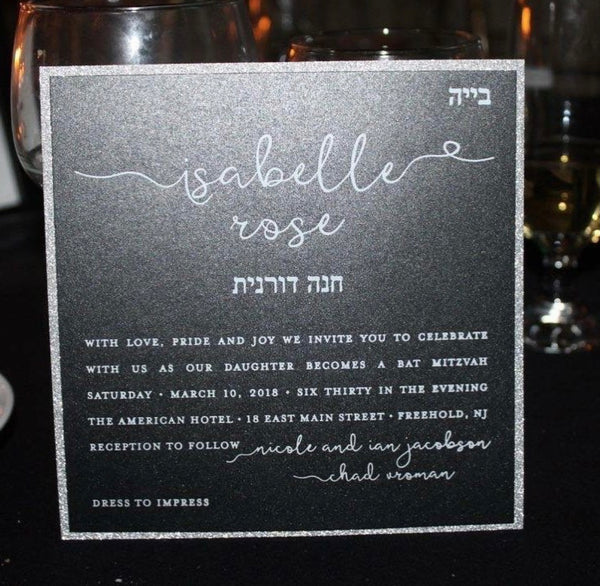 בייה
isabelle
rose
חנה דורנית
WITH LOVE, PRIDE AND JOY WE INVITE YOU TO CELEBRATE
WITH US AS OUR DAUGHTER BECOMES A BAT MITZVAH
SATURDAY • MARCH 10, 2018 • SIX THIRTY IN THE EVENING
THE AMERICAN HOTEL • 18 EAST MAIN STREET • FREEHOLD, NJ
RECEPTION TO FOLLOW nicole and ian jacobson
chad vroman
DRESS TO IMPRESS